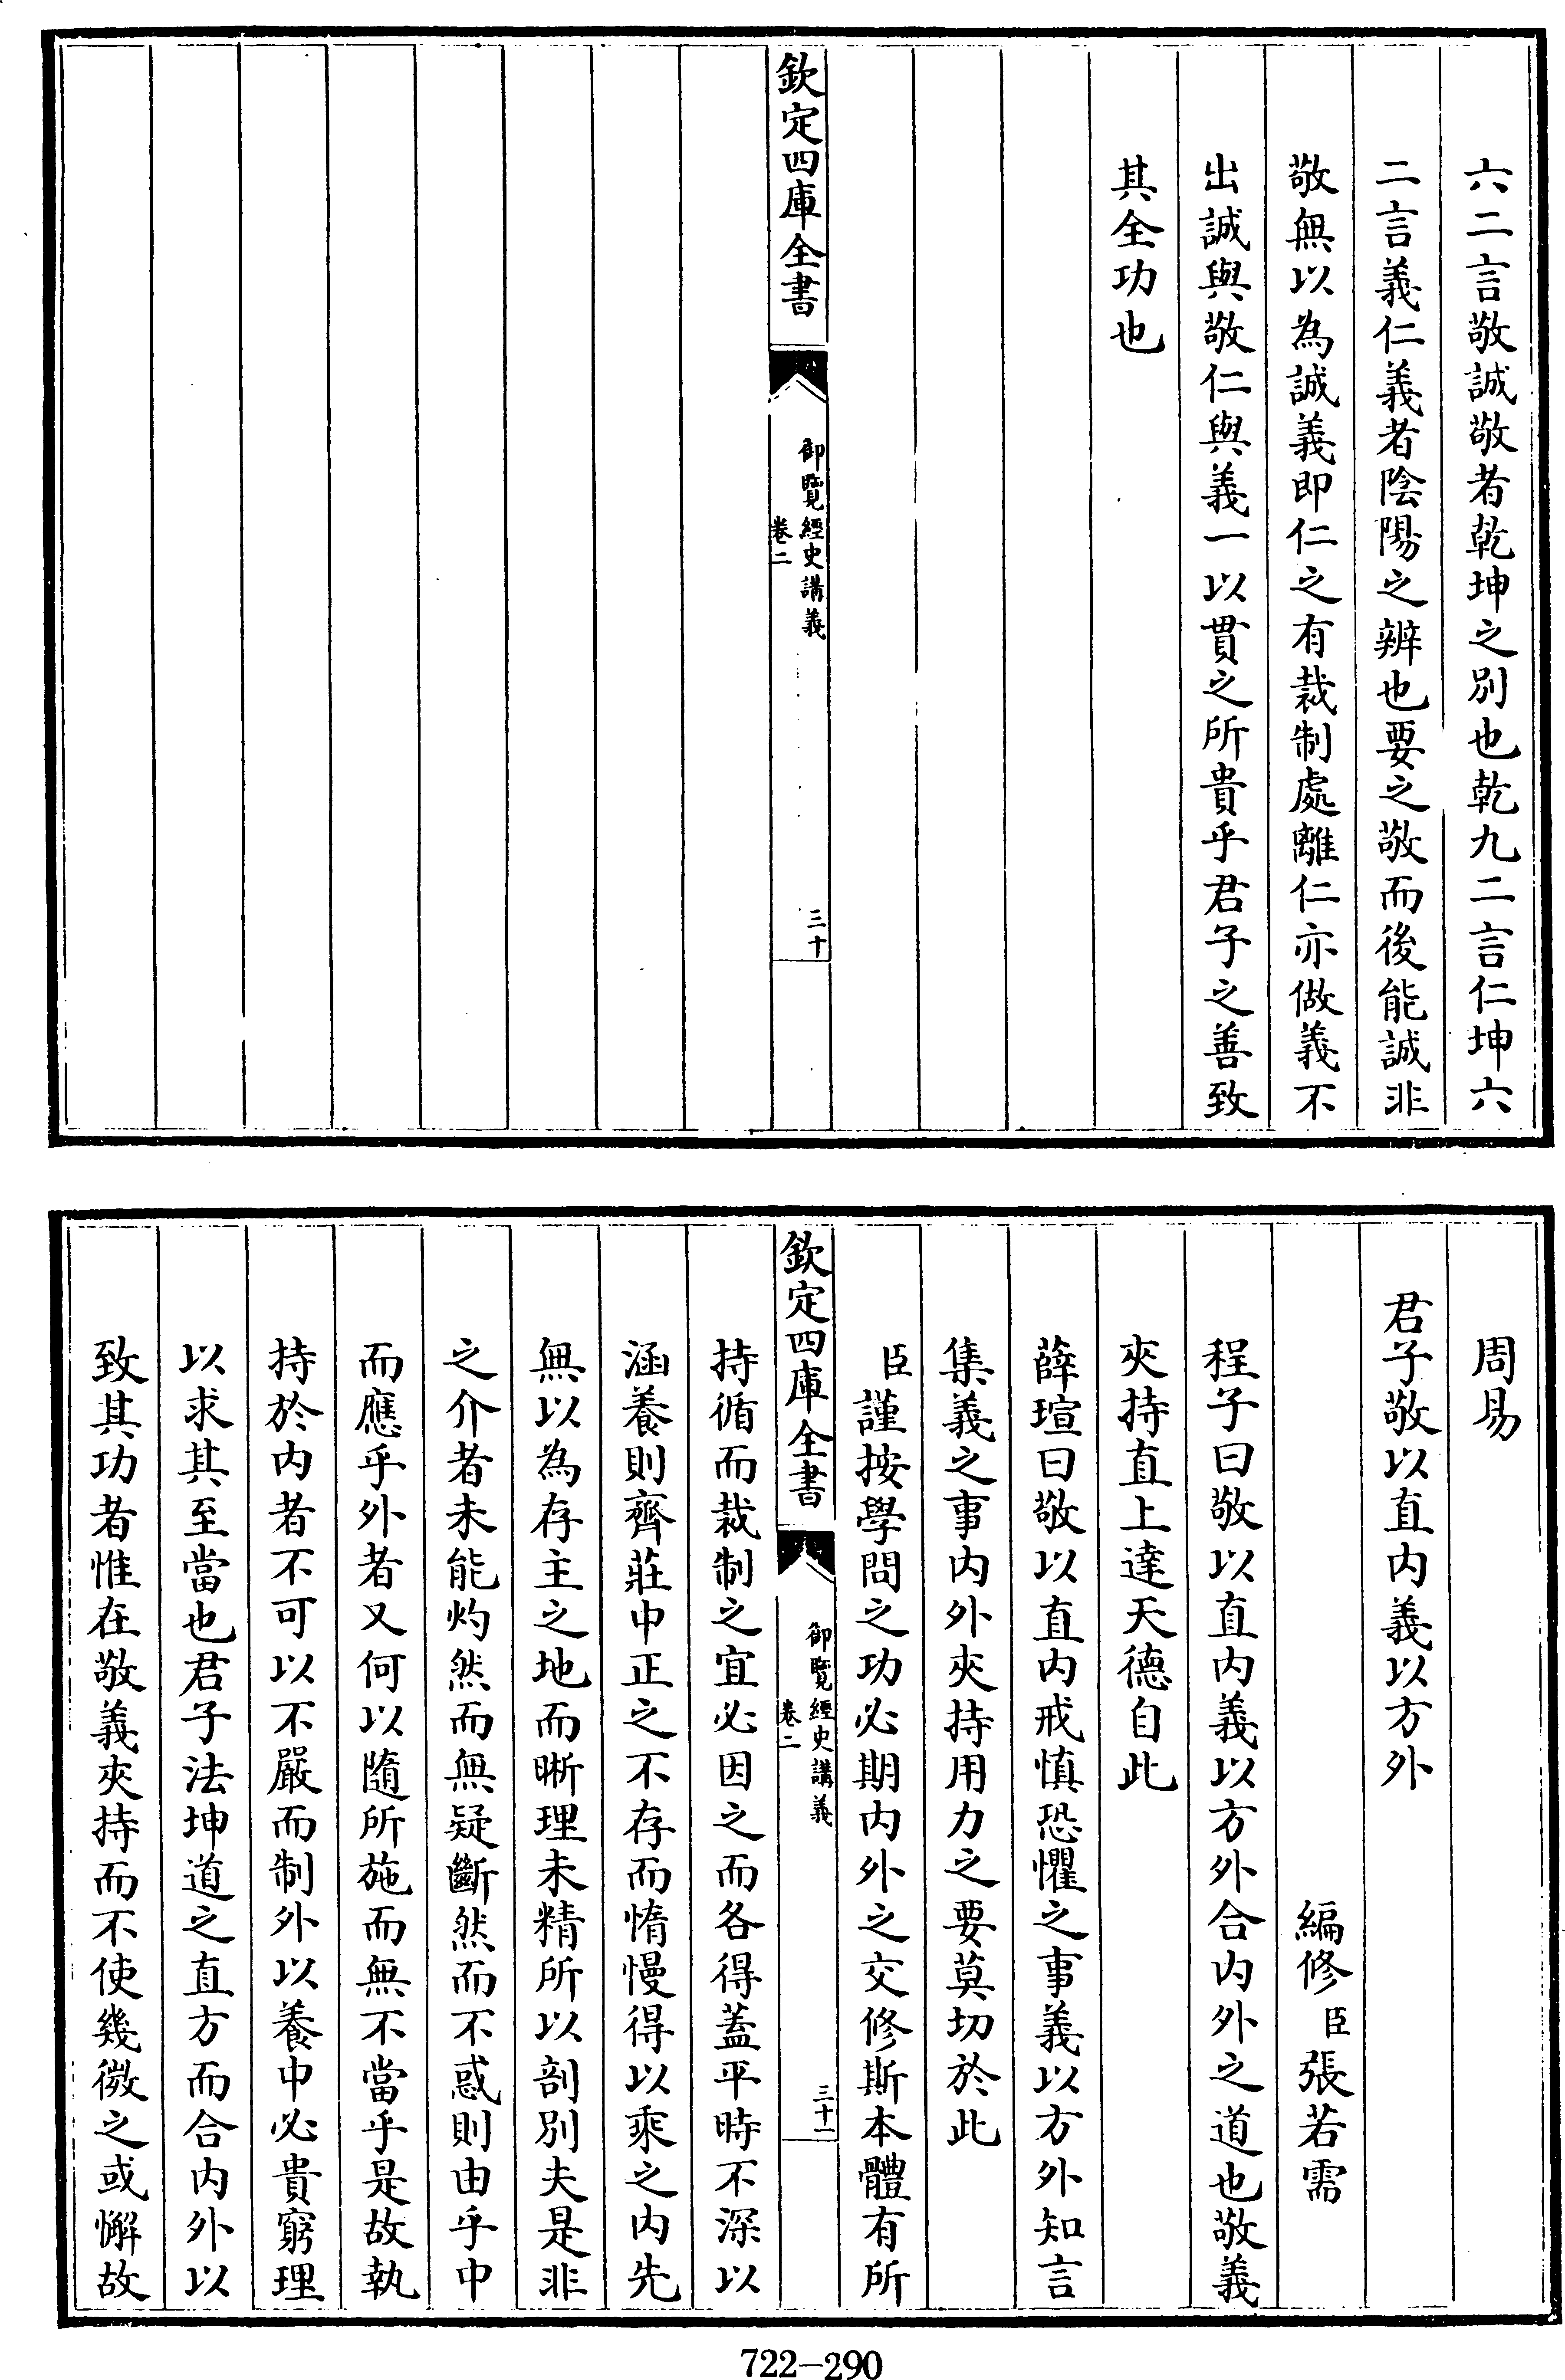 六二言敬誠敬者乾坤之別也乾九二言仁坤六
二言義仁義者陰陽之辨也要之敬而後能誠非
敬無以為誠義即仁之有裁制處離仁亦做義不
出誠與敬仁與義一以貫之所貴乎君子之善致
其全功也
欽定四庫全書
御覽經史講義
卷二
三十
周易
君子敬以直内義以方外
編修臣張若需
程子曰敬以直内義以方外合内外之道也敬義
夾持直上達天德自此
薛瑄曰敬以直内戒慎恐懼之事義以方外知言
集義之事内外夾持用力之要莫切於此
臣謹按學問之功必期内外之交修斯本體有所
欽定四庫全書
御覽經史講義
卷二
三十一
持循而裁制之宜必因之而各得蓋平時不深以
涵養則齊莊中正之不存而惰慢得以乘之内先
無以為存主之地而晰理未精所以剖別夫是非
之介者未能灼然而無疑斷然而不惑則由乎中
而應乎外者又何以隨所施而無不當乎是故執
持於内者不可以不嚴而制外以養中必貴窮理
以求其至當也君子法坤道之直方而合内外以
致其功者惟在敬義夾持而不使幾微之或懈故
722—290